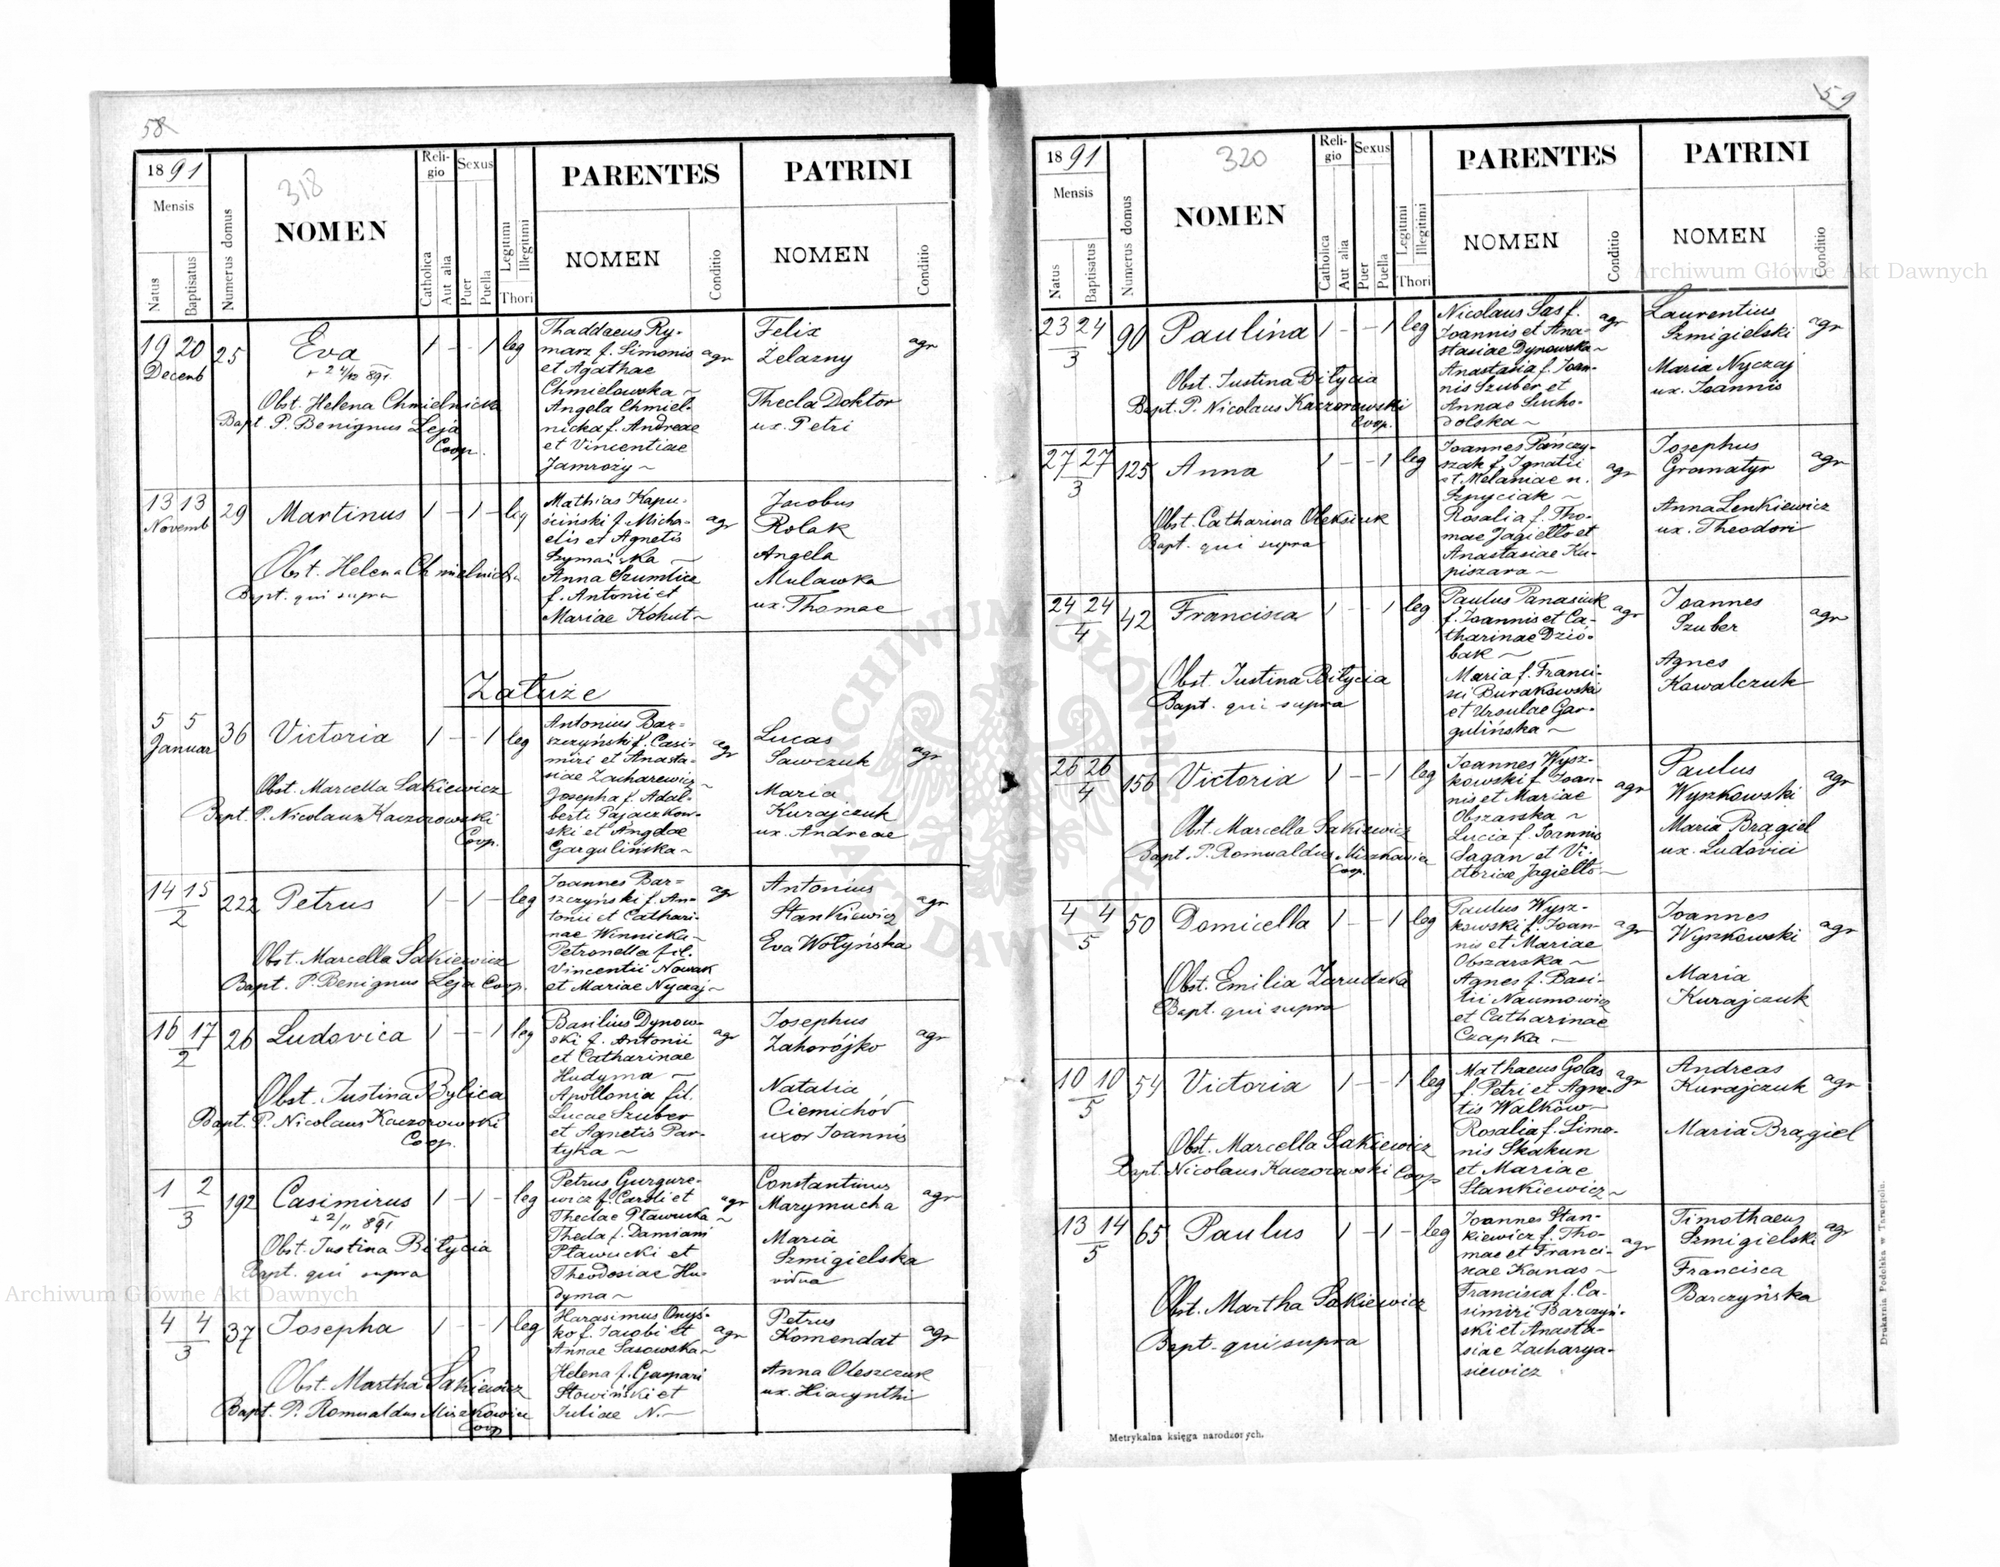 58
1891
318
Religio
Sexus
PARENTES
PATRINI
Mensis
Natus
Baptisatus
Numerus domus
NOMEN
Catholica
Aut alia
Puer
Puella
Legitimi
Illegitimi
Thori
NOMEN
Conditio
NOMEN
Conditio
19 20
Decemb
25
Eva
+ 24/12 891
1 - - 1 leg
Obst. Helena Chmielnicka
Bapt. P. Benignus Leja
Coop.
Thaddaeus Ry-
marz f. Simonis
et Agathae
Chmielowska ~
Angela Chmiel-
nicka f. Andreae
et Vincentiae
Jamrozy ~
agr
Felix
Żelazny
Thecla Doktor
ux. Petri
agr
13 13
Novemb
29
Martinus
1 - 1 - leg
Obst. Helena Chmielnicka
Bapt. qui supra
Mathias Kapu-
ściński f. Micha-
elis et Agnetis
Szymańska ~
Anna Szumlicz
f. Antonii et
Mariae Kohut ~
agr
Jacobus
Rolak
Angela
Mulawka
ux. Thomae
Załuże
5 5
Januar
36
Victoria
1 - - 1 leg
Obst. Marcella Sakiewicz
Bapt. P. Nicolaus Kaczorowski
Coop.
Antonius Bar-
szczyński f. Casi-
miri et Anasta-
siae Zacharewicz ~
Josepha f. Adal-
berti Pajaczkow-
ski et Angelae
Gargulińska ~
agr
Lucas
Sawczuk
Maria
Kurajczuk
ux. Andreae
agr
14 15
2
222
Petrus
1 - 1 - leg
Obst. Marcella Sakiewicz
Bapt. P. Benignus Leja Coop.
Joannes Bar-
szczyński f. An-
tonii et Cathari-
nae Winnicka ~
Petronella fil.
Vincentii Nowak
et Mariae Nyczaj ~
agr
Antonius
Stankiewicz
Eva Wołyńska
agr
16 17
2
26
Ludovica
1 - - 1 leg
Obst. Justina Bylica
Bapt. P. Nicolaus Kaczorowski
Coop.
Basilius Dynow-
ski f. Antonii
et Catharinae
Hudyma ~
Apollonia fil.
Lucae Szuber
et Agnetis Par-
tyka ~
agr
Josephus
Zahorójko
Natalia
Ciemichód
uxor Joannis
agr
1 2
3
192
Casimirus
+ 2/11 891
1 - 1 - leg
Obst. Justina Biłycia
Bapt. qui supra
Petrus Gurgure-
wicz f. Caroli et
Theclae Pławucka ~
Thecla f. Damiani
Pławucki et
Theodosiae Hu-
dyma ~
agr
Constantinus
Marymucha
Maria
Szmigielska
vidua
agr
4 4
3
37
Josepha
1 - - 1 leg
Obst. Martha Sakiewicz
Bapt. P. Romualdus Miszkowicz
Coop
Harasimus Onyś-
ko f. Jacobi et
Annae Sasowska ~
Helena f. Gaspari
Słowiński et
Juliae N. ~
agr
Petrus
Komendat
Anna Oleszczuk
ux. Hiacynthi
agr
59
1891
320
Religio
Sexus
PARENTES
PATRINI
Mensis
Natus
Baptisatus
Numerus domus
NOMEN
Catholica
Aut alia
Puer
Puella
Legitimi
Illegitimi
Thori
NOMEN
Conditio
NOMEN
Conditio
23 24
3
90
Paulina
1 - - 1 leg
Obst. Justina Biłycia
Bapt. P. Nicolaus Kaczorowski
Coop.
Nicolaus Sas f.
Joannis et Ana-
stasiae Dynowska ~
Anastasia f. Joan-
nis Szuber et
Annae Sucho-
dolska ~
agr
Laurentius
Szmigielski
Maria Nyczaj
ux. Joannis
agr
27 27
3
125
Anna
1 - - 1 leg
Obst. Catharina Oleksiuk
Bapt. qui supra
Joannes Pańczy-
szak f. Ignatii
et Melaniae n.
Szpyciak ~
Rosalia f. Tho-
mae Jagiełło et
Anastasiae Ku-
piszara ~
agr
Josephus
Gramatyr
Anna Lenkiewicz
ux. Theodori
agr
24 24
4
42
Francisca
1 - - 1 leg
Obst Justina Biłycia
Bapt. qui supra
Paulus Panasiuk
f. Joannis et Ca-
tharinae Dzio-
bak ~
Maria f. Franci-
sci Burakowski
et Ursulae Gar-
gulińska ~
agr
Joannes
Szuber
Agnes
Kowalczuk
agr
26 26
4
156
Victoria
1 - - 1 leg
Obst. Marcella Sakiewicz
Bapt. P. Romualdus Miszkowicz
Coop.
Joannes Wysz-
kowski f. Joan-
nis et Mariae
Obszarska ~
Lucia f. Joannis
Sagan et Vi-
ctoriae Jagiełło ~
agr
Paulus
Wyszkowski
Maria Brągiel
ux. Ludovici
agr
4 4
5
50
Domicella
1 - - 1 leg
Obst. Emilia Zarudzka
Bapt. qui supra
Paulus Wysz-
kowski f. Joan-
nis et Mariae
Obszarska ~
Agnes f. Basi-
lii Naumowicz
et Catharinae
Czapka ~
agr
Joannes
Wyszkowski
Maria
Kurajczuk
agr
10 10
5
54
Victoria
1 - - 1 leg
Obst. Marcella Sakiewicz
Bapt. Nicolaus Kaczorowski Coop
Mathaeus Golas
f. Petri et Agne-
tis Walków ~
Rosalia f. Simo-
nis Skakun
et Mariae
Stankiewicz ~
agr
Andreas
Kurajczuk
Maria Brągiel
agr
13 14
5
65
Paulus
1 - 1 - leg
Obst. Martha Sakiewicz
Bapt. qui supra
Joannes Stan-
kiewicz f. Tho-
mae et Franci-
scae Kanas ~
Francisca f. Ca-
simiri Barczyń-
ski et Anasta-
siae Zacharya-
siewicz
agr
Timothaeus
Szmigielski
Francisca
Barczyńska
agr
Metrykalna księga narodzonych.
Drukarnia Podolska w Tarnopolu.
Archiwum Główne Akt Dawnych
Archiwum Główne Akt Dawnych
ARCHIWUM GŁÓWNE AKT DAWNYCH